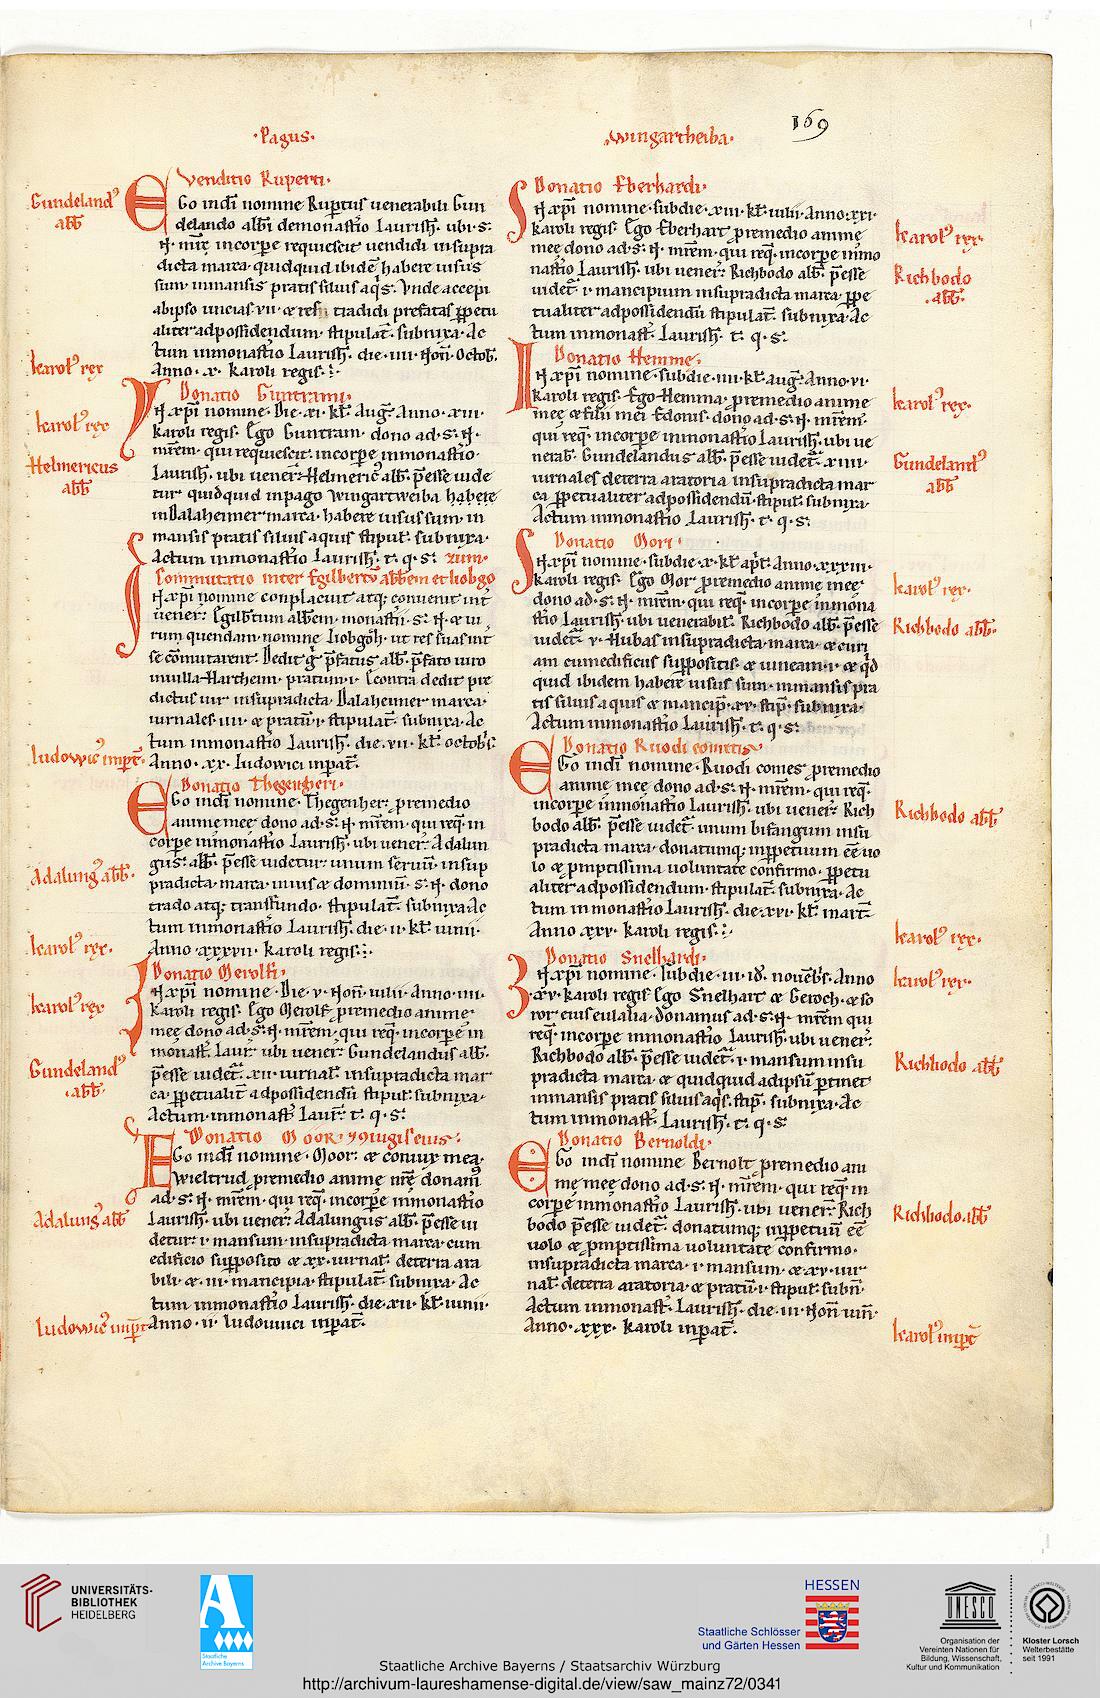 ·Pagus·
·Wingartheiba·
169
Venditio Ruperti·
Gundeland⁹
abb̄
EGo indī nomine Rup̄tus uenerabili Gun
delando abb̄i demonast̄io Laurish̄· ubi·s·
N· mr̄ incorp̄e requiescit uendidi insupra
dicta marca· quidquid ibidē habere uisus
sum inmansis pratis siluis aq̄s· Vnde accepi
abipso uncias·vii· &
tradidi prefatas ꝑpetu
aliter adpossidendum· stipulat̄· subnixa· Ac
tum inmonast̄io Laurish̄· die·iiii· Non̄ Octob̄·
Anno·x· karoli regis·:·
karol⁹ rex
Donatio Guntrami·
IN xp̄i nomine· Die·xi· kt̄ Auḡ· Anno·xiii·
karoli regis· Ego Guntram· dono ad·s·N·
mr̄em· qui requiescit· incorp̄e inmonast̄io·
Laurish̄· ubi uener̄· Helmeric⁹ abb̄· p̄esse uide
tur quidquid inpago Wingartweiba habere
inDalaheimer marca· habere uisus sum· in
mansis pratis siluis aquis stiput̄· subnixa·
Actum inmonast̄io Laurish̄· t· q·s·
karol⁹ rex
Helmericus
abb̄
Commutatio inter Egilbertū abb̄em et liobgo
zum·
IN xp̄i nomine conplacuit atq; conuenit int̄
uener̄· Egilbtum abb̄em· monast̄ii· s·N· & ui
rum quendam· nomine Liobgoh̄· ut res suas int̄
se cōmutarent· Dedit g̊ p̄fatus abb̄· p̄fato uiro
inuilla Hartheim· pratum·i· Econtra dedit pre
dictus uir insupradicta· Dalaheimer marca·
iurnales·iiii· & pratū·i· stipulat̄· subnixa· Ac
tum inmonast̄io Laurish̄· die·vii· kt̄ octob̄s·
Anno·xx· Ludowici inꝑat̄·
Ludowic⁹ imꝑat̄·
Donatio Thegenheri·
EGo indī nomine· Thegenher· ꝓremedio
anime mee dono ad·s·N· mr̄em· qui req̄· in
corp̄e inmonast̄io Laurish̄· ubi uener̄· Adalun
gus· abb̄· p̄esse uidetur· unum seruū· insup
pradicta· marca· iuuis & dominiū· s·N· dono
trado atq; transfundo· stipulat̄· subnixa· Ac
tum inmonast̄io Laurish̄· die·ii· kt̄ iunii·
Anno·xxxvii· karoli regis·:·
Adalung⁹ abb̄·
karol⁹ rex·
Donatio Gerolfi·
IN xp̄i nomine· Die·v· Non̄· iulii· Anno·iiii·
karoli regis· Ego Gerolf ꝓremedio anime·
mee dono ad·s·N· mr̄em· qui req̄· incorp̄e in
monast̄· Laur̄· ubi uener̄· Gundelandus abb̄·
p̄esse uidet̄· xii· iurnat̄· insupradicta mar
ca· ꝑpetualit̄ adpossidendū· stiput̄· subnixa·
Actum· inmonast̄· Laur̄· t· q·s·
karol⁹ rex
Gundeland⁹
·abb̄·
Donatio Moor· ꝯiugis eius·
EGo indī nomine· Moor· & coniux mea·
Wieltrud ꝓremedio anime nr̄e donam⁹
ad·s·N· mr̄em· qui req̄· incorp̄e inmonast̄io
Laurish̄· ubi uener̄· Adalungus abb̄· p̄esse ui
detur· i· mansum· insupradicta marca· cum
edificio supposito & xx· iurnat̄· deterra ara
bili & iii· mancipia· stipulat̄· subnixa· Ac
tum inmonast̄io Laurish̄· die·xii· kt̄ iunii·
Anno·ii· ludouuici inꝑat̄·
Adalung⁹ abb̄
Ludowic⁹ imꝑat̄
Donatio Eberhardi·
IN xp̄i nomine· subdie·xiii· kt̄ iulii· Anno·xxi·
karoli regis· Ego Eberhart ꝓremedio anime
mee dono ad·s·N· mr̄em· qui req̄· incorp̄e inmo
nast̄io Laurish̄· ubi uener̄· Richbodo abb̄· p̄esse
uidet̄· i· mancipium insupradicta marca ꝑpe
tualiter adpossidendum· stipulat̄· subnixa· Ac
tum inmonast̄· Laurish̄· t· q·s·
karol⁹ rex·
Richbodo
·abb̄·
Donatio Hemme·
IN xp̄i nomine· subdie·iiii· kt̄ auḡ· Anno·vi·
karoli regis· Ego Hemma· ꝓremedio anime
mee & filii mei Edonis· dono ad·s·N· mr̄em·
qui req̄· incorp̄e inmonast̄io Laurish̄· ubi ue
nerab̄· Gundelandus abb̄· p̄esse uidet̄· xiiii·
iurnales deterra aratoria insupradicta mar
ca· ꝑpetualiter adpossidendū· stiput̄· subnixa·
Actum inmonast̄io Laurish̄· t· q·s·
karol⁹ rex·
Gundeland⁹
abb̄
Donatio Mori·
IN xp̄i nomine· subdie·x· kt̄ ap̄r̄· Anno·xxxiii·
karoli regis· Ego Mor ꝓremedio anime mee
dono ad·s·N· mr̄em· qui req̄· incorp̄e inmona
st̄io Laurish̄· ubi uenerabit̄· Richbodo abb̄· p̄esse
uidet̄· v· Hubas insupradicta· marca· & curi
am cumedificiis suppositis· & uineam·i· & q̊d
quid ibidem habere uisus sum· inmansis pra
tis siluis aquis & mancip̄·xv· stip̄· subnixa·
Actum inmonast̄io Laurish̄· t· q·s·
karol⁹ rex·
Richbodo abb̄·
Donatio Ruodi comitis
EGo indī nomine· Ruodi comes ꝓremedio
anime mee dono ad·s·N· mr̄em· qui req̄·
incorp̄e inmonast̄io Laurish̄· ubi uener̄· Rich
bodo abb̄· p̄esse uidet̄· unum bifangum insu
pradicta marca· donatumq; inꝑpetuum eē uo
lo & ꝓmptissima uoluntate confirmo· ꝑpetu
aliter adpossidendum· stipulat̄· subnixa· Ac
tum inmonast̄io Laurish̄· die·xvi· kt̄ mart̄
Anno·xxv· karoli regis·:·
Richbodo abb̄
karol⁹ rex·
Donatio Snelhardi·
IN xp̄i nomine· subdie·iii·id̄· nouēb̄s· Anno
xv· karoli regis· Ego Snelhart & Geroch· & so
ror eius eulalia· donamus ad·s·N· mr̄em qui
req̄· incorp̄e inmonast̄io Laurish̄· ubi uener̄·
Richbodo abb̄· p̄esse uidet̄· i· mansum insu
pradicta marca· & quidquid adipsū ꝑtinet
inmansis pratis siluis aq̄s· stip̄· subnixa· Ac
tum inmonast̄· Laurish̄· t· q·s·
karol⁹ rex·
Richbodo abb̄
Donatio Bernoldi·
EGo indī nomine Bernolt ꝓremedio ani
me mee dono ad·s·N· mr̄em· qui req̄· in
corp̄e inmonast̄io Laurish̄· ubi uener̄· Rich
bodo p̄esse uidet̄· donatumq; inꝑpetuū eē
uolo & ꝓmptissima uoluntate confirmo·
insupradicta marca· i· mansum· & xv· iur
nat̄· deterra aratoria· & pratū·i· stiput̄· subn̄·
Actum inmonast̄· Laurish̄· die·iii· Non̄ iun̄·
Anno·xxx· karoli inꝑat̄·
Richbodo abb̄
karol⁹ imꝑat̄
UNIVERSITÄTS-
BIBLIOTHEK
HEIDELBERG
A
Staatliche
Archive Bayerns
Staatliche Archive Bayerns / Staatsarchiv Würzburg
http://archivum-laureshamense-digital.de/view/saw_mainz72/0341
HESSEN
Staatliche Schlösser
und Gärten Hessen
UNESCO
Organisation der
Vereinten Nationen für
Bildung, Wissenschaft,
Kultur und Kommunikation
Kloster Lorsch
Welterbestätte
seit 1991